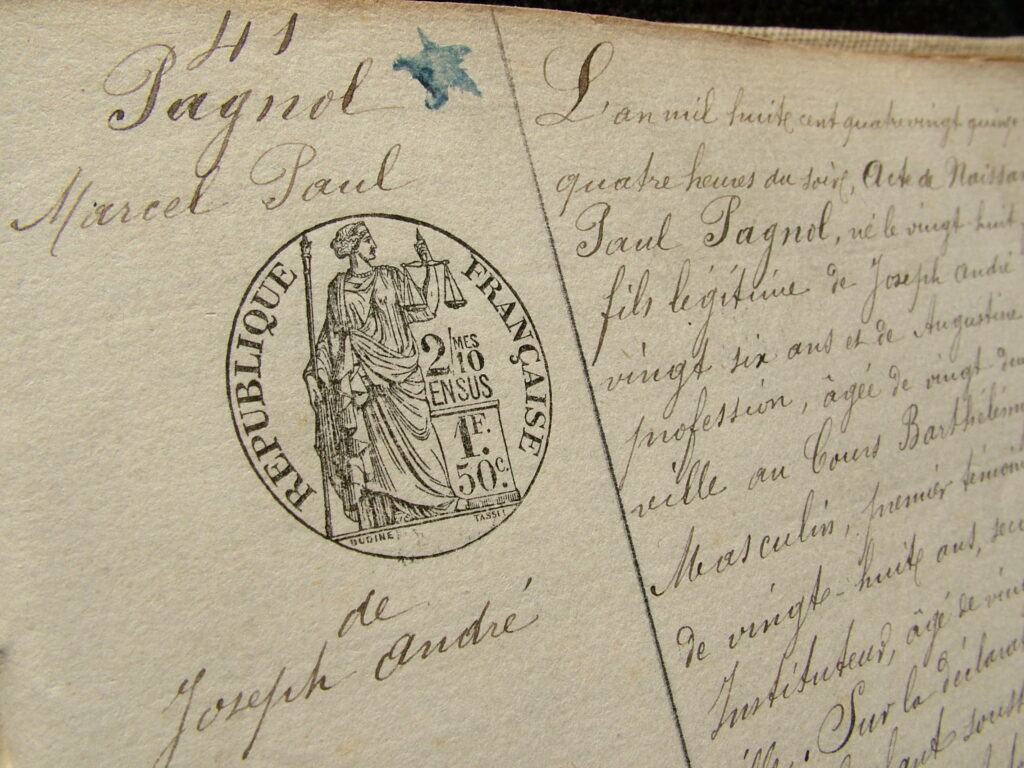 41
Pagnol
Marcel Paul
REPUBLIQUE FRANÇAISE
2/MES
10
EN SUS
1F.
50c.
OUDINÉ
TASSET
de
Joseph André
L'an mil huit cent quatre vingt quinze
quatre heures du soir, Acte de Naissan
Paul Pagnol, né le vingt huit
fils légitime de Joseph André
vingt six ans et de Augustine
profession, âgée de vingt
ville au Cours Barthélem
Masculin, premier témoin
de vingt-huit ans,
Instituteur, âgé de
Sur la déclara